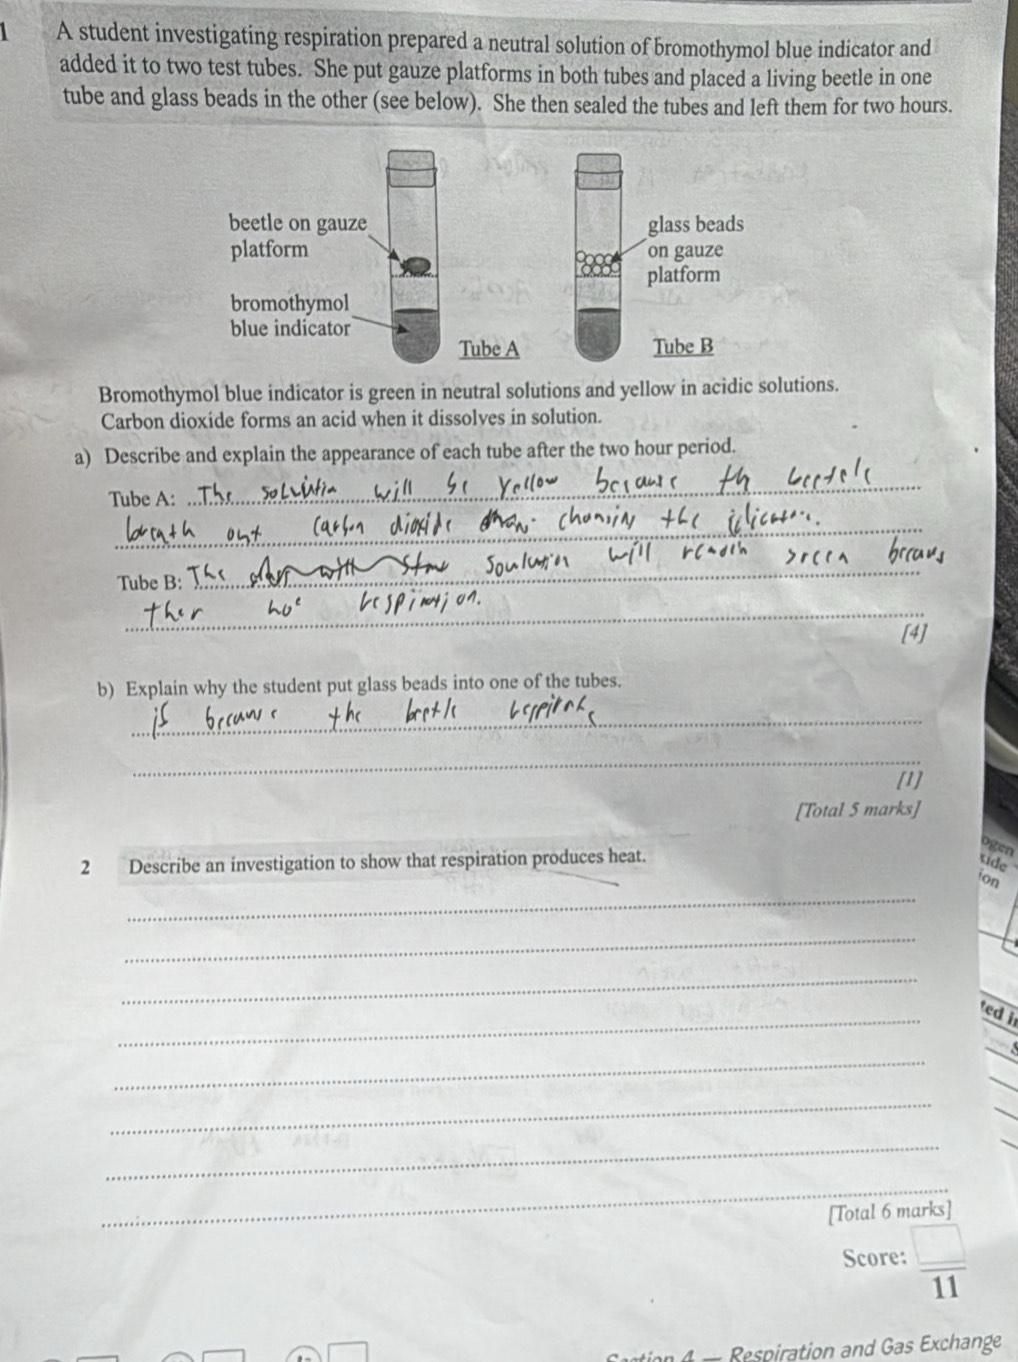 1 A student investigating respiration prepared a neutral solution of bromothymol blue indicator and
added it to two test tubes. She put gauze platforms in both tubes and placed a living beetle in one
tube and glass beads in the other (see below). She then sealed the tubes and left them for two hours.
beetle on gauze
platform
bromothymol
blue indicator
Tube A
glass beads
on gauze
platform
Tube B
Bromothymol blue indicator is green in neutral solutions and yellow in acidic solutions.
Carbon dioxide forms an acid when it dissolves in solution.
a) Describe and explain the appearance of each tube after the two hour period.
Tube A: The will be yellow because th
breath out carbon dioxide the
Tube B: The will green
ther no
[4]
b) Explain why the student put glass beads into one of the tubes.
is because the
[1]
[Total 5 marks]
2 Describe an investigation to show that respiration produces heat.
[Total 6 marks]
Score:
11
4 — Respiration and Gas Exchange
ogen
ion
ted i